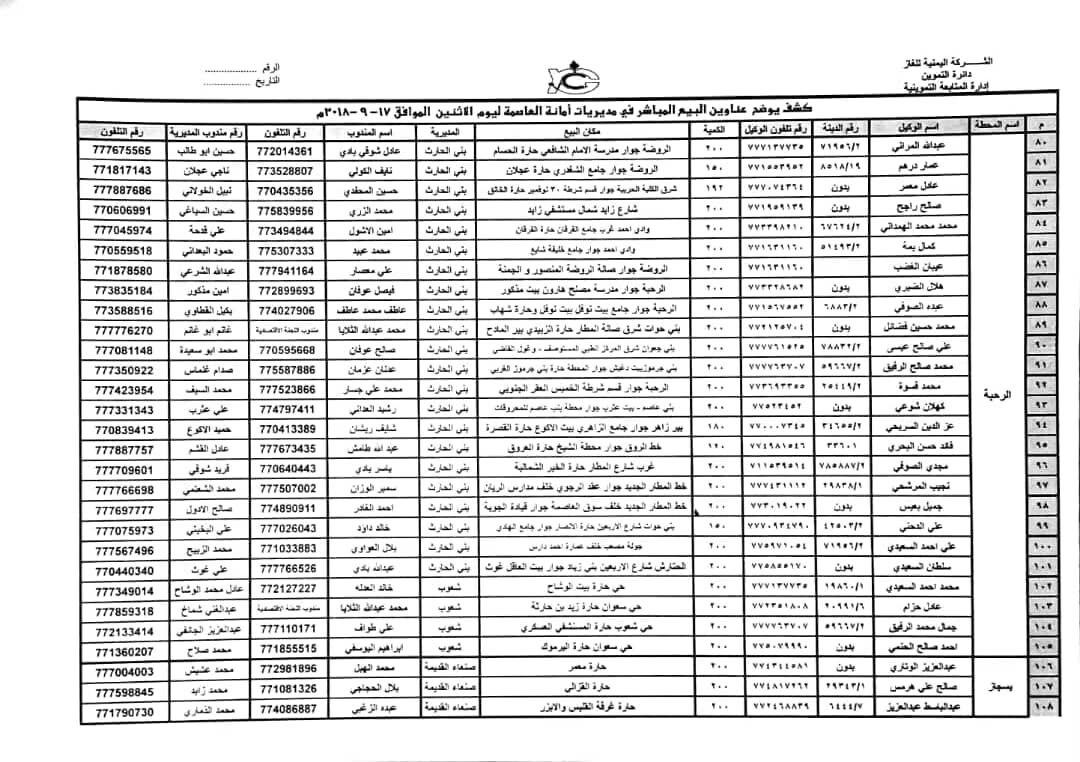 الشركة اليمنية للغاز
دائرة التموين
إدارة المتابعة التموينية
الرقم ....................
التاريخ ....................
كشف يوضح عناوين البيع المباشر في مديريات أمانة العاصمة ليوم الاثنين الموافق ١٧-٩-٢٠١٨م
م اسم المحطة اسم الوكيل رقم الدينة رقم تلفون الوكيل الكمية مكان البيع المديرية اسم المندوب رقم التلفون رقم مندوب المديرية رقم التلفون
الرحبة
٨٠ عبدالله المراني ٧١٩٥٦/٢ ٧٧٧١٣٧٧٣٥ ٢٠٠ الروضة جوار مدرسة الامام الشافعي حارة الحسام بني الحارث عادل شوقي بادي 772014361 حسين ابو طالب 777675565
٨١ عمار درهم ٨٥١٨/١٩ ٧٧١٥٥٣٩٥٢ ١٥٠ الروضة جوار جامع الشغدري حارة عجلان بني الحارث نايف الكولي 773528807 ناجي عجلان 771817143
٨٢ عادل معمر بدون ٧٧٧٠٧٤٣٦٤ ١٩٢ شرق الكلية الحربية جوار قسم شرطة ٣٠ نوفمبر حارة الخالق بني الحارث حسين المحفدي 770435356 نبيل الخولاني 777887686
٨٣ صالح راجح بدون ٧٧١٩٥٩١٣٩ ٢٠٠ شارع زايد شمال مستشفي زايد بني الحارث محمد الزري 775839956 حسين السياغي 770606991
٨٤ محمد محمد الهمداني ٦٧٦٢٤/٢ ٧٧٣٣٩٨٢١٠ ٢٠٠ وادي احمد غرب جامع الفرقان حارة الفرقان بني الحارث امين الاشول 773494844 علي قدحة 777045974
٨٥ كمال يمة ٥١٤٩٣/٢ ٧٧١٦٣١١٦٠ ٢٠٠ وادي احمد جوار جامع خليفة شايع بني الحارث محمد عبيد 775307333 حمود البعداني 770559518
٨٦ عيبان الغضب ٧٧١٦٣١١٦٠ ٢٠٠ الروضة جوار صالة الروضة المنصور و الجمنة بني الحارث علي معصار 777941164 عبدالله الشرعي 771878580
٨٧ هلال الضبري بدون ٧٧٣٣٢٨٦٨٢ ٢٠٠ الرحبة جوار مدرسة مصلح هارون بيت مذكور بني الحارث فيصل عوفان 772899693 امين مذكور 773835184
٨٨ عبده الصوفي ٦٨٨٣/٢ ٧٧١٥٦٧٥٥٢ ٢٠٠ الرحبة جوار جامع بيت نوفل بيت نوفل وحارة شهاب بني الحارث عاطف محمد عاطف 774027906 بكيل القطاوي 773588516
٨٩ محمد حسين فضائل بدون ٧٧٢١٢٥٧٠٤ ٢٠٠ بني حوات شرق صالة المطار حارة الزبيدي بير المادح بني الحارث محمد عبدالله الثلايا مندوب اللجنة الاقتصادية غانم ابو غانم 777776270
٩٠ علي صالح عبسى ٧٨٨٣٢/٢ ٧٧٧٧٦١٥٢٥ ٢٠٠ بني جعوان شرق المركز الطبي المستوصف - وغول القاضي بني الحارث صالح عوفان 770595668 محمد ابو سعيدة 777081148
٩١ محمد صالح الرفيق ٥٩٦٦٧/٢ ٧٧٧٧٦٣٧٠٧ ٢٠٠ بني جرموزبيت دغيش جوار المحطة حارة بني جرموز الغربي بني الحارث عدنان عزمان 775587886 صدام غثماس 777350922
٩٢ محمد قسوة ٢٥٤٤٩/٢ ٧٧٣٦٩٣٣٥٥ ٢٠٠ الرحبة جوار قسم شرطة الخميس العقر الجنوبي بني الحارث محمد علي جسار 777523866 محمد السيف 777423954
٩٣ كهلان شوعي بدون ٧٧٥٢٣٤٥٢ ٢٠٠ بني عاصم - بيت عذرب جوار محطة بنت عاصم للمحروقات بني الحارث رشيد العداني 774797411 علي عذرب 777331343
٩٤ عز الدين السريحي ٣٤٦٥٥/٢ ٧٧٠٠٠٧٣٤٥ ١٨٠ بير زاهر جوار جامع الزاهري بيت الاكوع حارة القصرة بني الحارث شايف ريشان 770413389 حميد الاكوع 770839413
٩٥ قائد حسن البحري ٣٣٦٠١ ٧٧٤٩٨١٥٤٦ ١٢٠ خط الزوق جوار محطة الشيخ حارة العروق بني الحارث عبد الله طامش 777673435 عادل القشم 777887757
٩٦ مجدي الصوفي ٧٨٥٨٨٧/٢ ٧١١٥٣٩٥١٤ ٢٠٠ غرب شارع المطار حارة الخير الشمالية بني الحارث ياسر بادي 770640443 فريد شوقي 777709601
٩٧ نجيب المرشحي ٢٩٨٣٨/١ ٧٧٧٤٣١١١٢ ٢٠٠ خط المطار الجديد جوار عقد الرجوي خلف مدارس الريان بني الحارث سمير الوزان 777507002 محمد الشعثمي 777766698
٩٨ جميل بعبس بدون ٧٧٣٠١٩٠٢٢ ٢٠٠ خط المطار الجديد خلف سوق العاصمة جوار قيادة الجوية بني الحارث احمد القادر 774890911 صالح الادول 777697777
٩٩ علي الدحني ٤٢٥٠٣/٢ ٧٧٧٠٩٣٤٧٩٠ ١٥٠ بني حوات شارع الاربعين حارة الانصار جوار جامع الهادي بني الحارث خالد داود 777026043 علي البخيتي 777075973
١٠٠ علي احمد السعيدي ٧١٩٥٦/٢ ٧٧٥٩٧١٠٥٤ ٢٠٠ جولة مصعب خلف عمارة احمد دارس بني الحارث بلال العواوي 771033883 محمد الزبيح 777567496
١٠١ سلطان السعيدي بدون ٧٧٥٨٥٥١٧٠ ٢٠٠ الحتارش شارع الاربعين بني زياد جوار بيت العاقل غوث بني الحارث عبدالله بادي 777766526 علي غوث 770440340
١٠٢ محمد احمد السعيدي ١٩٨٦٠/١ ٧٧٧١٣٧٧٣٥ ٢٠٠ حي حارة بيت الوشاح شعوب خالد العدله 772127227 عادل محمد الوشاح 777349014
١٠٣ عادل حزام ٢٠٩٩١/٦ ٧٧٢٣٥١٨٠٨ ٢٠٠ حي سعوان حارة زيد بن حارثة شعوب محمد عبدالله الثلايا مندوب اللجنة الاقتصادية عبدالغني شماخ 777859318
١٠٤ جمال محمد الرفيق ٥٩٦٦٧/٢ ٧٧٧٧٦٣٧٠٧ ٢٠٠ حي شعوب حارة المستشفي العسكري شعوب علي طواف 777110171 عبدالعزيز الجائفي 772133414
١٠٥ احمد صالح الحنمي بدون ٧٧٥٠٧٩٩٩٠ ٢٠٠ حي سعوان حارة اليرموك شعوب ابراهيم اليوسفي 771855515 محمد صلاح 771360207
يسجاز
١٠٦ عبدالعزيز الوناري بدون ٧٧٤٣٤٤٥٨١ ٢٠٠ حارة معمر صنعاء القديمة محمد الهبل 772981896 محمد عشيش 777004003
١٠٧ صالح علي هرمس ٢٩٣٤٣/١ ٧٧٤٨١٧٢٦٢ ٢٠٠ حارة الغزالي صنعاء القديمة بلال الحجاجي 771081326 محمد زايد 777598845
١٠٨ عبدالباسط عبدالعزيز ٦٤٤٤/٧ ٧٧٢٤٦٨٨٣٩ ٢٠٠ حارة غرقة القليس والابزر صنعاء القديمة عبده الزغبي 774086887 محمد الذماري 771790730